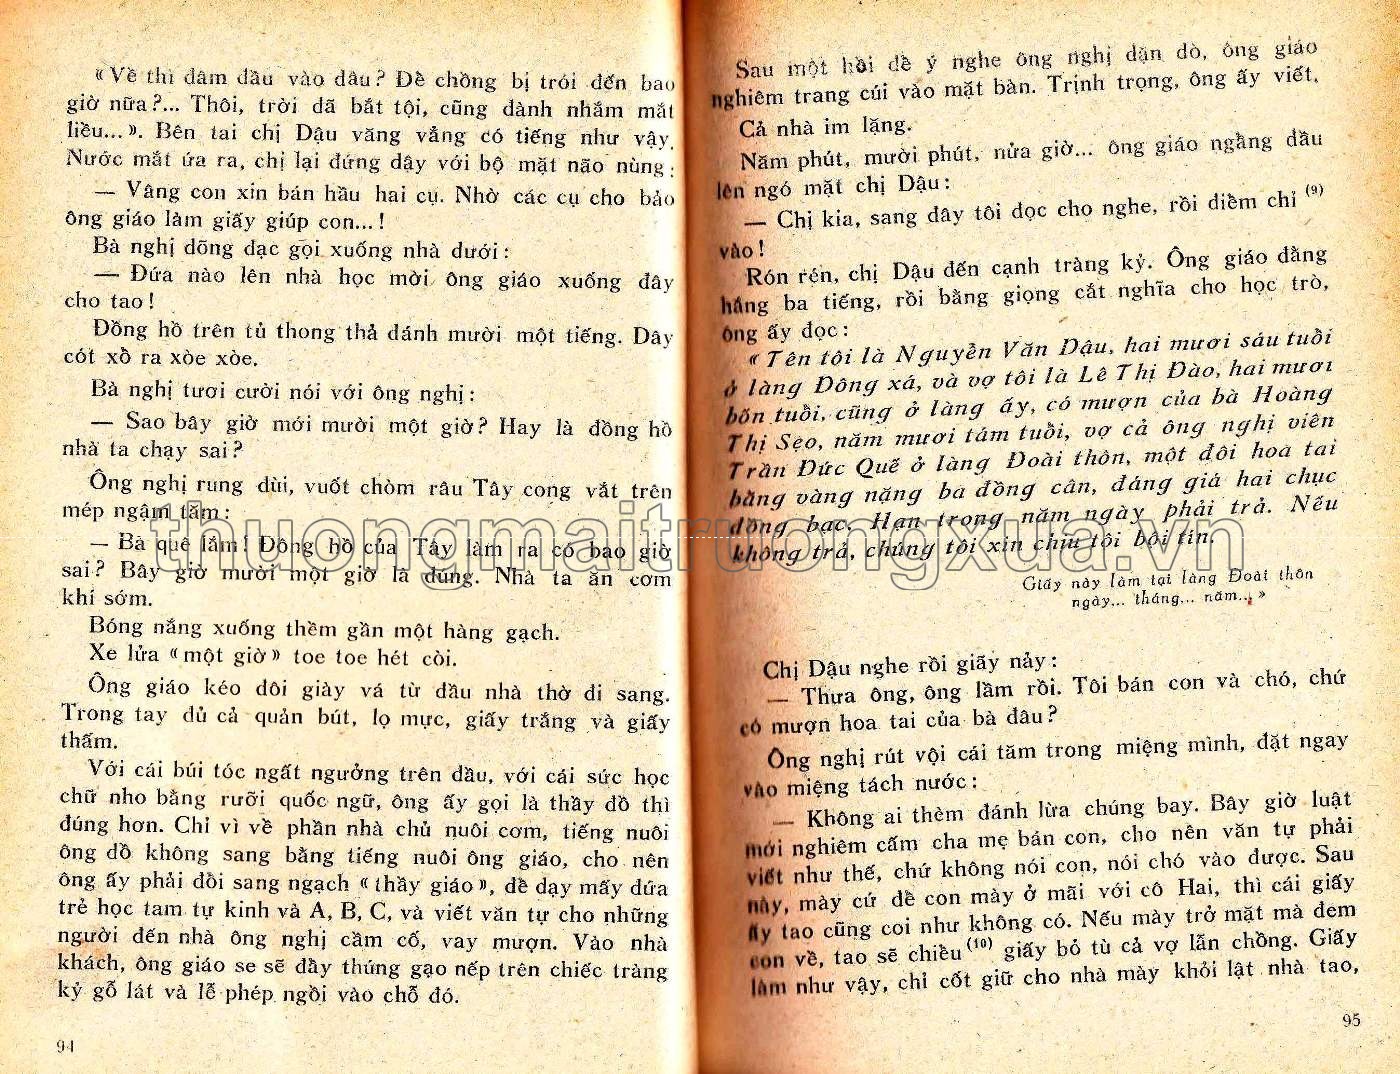 « Về thì đâm đầu vào đâu ? Để chồng bị trói đến bao
giờ nữa ?... Thôi, trời đã bắt tội, cũng đành nhắm mắt
liều... ». Bên tai chị Dậu văng vẳng có tiếng như vậy.
Nước mắt ứa ra, chị lại đứng dậy với bộ mặt não nùng :
— Vâng con xin bán hầu hai cụ. Nhờ các cụ cho bảo
ông giáo làm giấy giúp con... !
Bà nghị dõng dạc gọi xuống nhà dưới :
— Đứa nào lên nhà học mời ông giáo xuống đây
cho tao !
Đồng hồ trên tủ thong thả đánh mười một tiếng. Dây
cót xổ ra xòe xòe.
Bà nghị tươi cười nói với ông nghị :
— Sao bây giờ mới mười một giờ ? Hay là đồng hồ
nhà ta chạy sai ?
Ông nghị rung đùi, vuốt chòm râu Tây cong vắt trên
mép ngậm tăm :
— Bà quê lắm ! Đồng hồ của Tây làm ra có bao giờ
sai ? Bây giờ mười một giờ là đúng. Nhà ta ăn cơm
khí sớm.
Bóng nắng xuống thềm gần một hàng gạch.
Xe lửa « một giờ » toe toe hét còi.
Ông giáo kéo đôi giày vá từ đầu nhà thờ đi sang.
Trong tay đủ cả quản bút, lọ mực, giấy trắng và giấy
thấm.
Với cái búi tóc ngất ngưởng trên đầu, với cái sức học
chữ nho bằng rưỡi quốc ngữ, ông ấy gọi là thầy đồ thì
đúng hơn. Chỉ vì về phần nhà chủ nuôi cơm, tiếng nuôi
ông đồ không sang bằng tiếng nuôi ông giáo, cho nên
ông ấy phải đổi sang ngạch « thầy giáo », để dạy mấy đứa
trẻ học tam tự kinh và A, B, C, và viết văn tự cho những
người đến nhà ông nghị cầm cố, vay mượn. Vào nhà
khách, ông giáo se sẽ đẩy thúng gạo nếp trên chiếc tràng
kỷ gỗ lát và lễ phép ngồi vào chỗ đó.
94
Sau một hồi để ý nghe ông nghị dặn dò, ông giáo
nghiêm trang cúi vào mặt bàn. Trịnh trọng, ông ấy viết.
Cả nhà im lặng.
Năm phút, mười phút, nửa giờ... ông giáo ngẩng đầu
lên ngó mặt chị Dậu :
— Chị kia, sang đây tôi đọc cho nghe, rồi điềm chỉ (9)
vào !
Rón rén, chị Dậu đến cạnh tràng kỷ. Ông giáo đằng
hắng ba tiếng, rồi bằng giọng cắt nghĩa cho học trò,
ông ấy đọc :
« Tên tôi là Nguyễn Văn Dậu, hai mươi sáu tuổi
ở làng Đông xá, và vợ tôi là Lê Thị Đào, hai mươi
bốn tuổi, cũng ở làng ấy, có mượn của bà Hoàng
Thị Sẹo, năm mươi tám tuổi, vợ cả ông nghị viên
Trần Đức Quế ở làng Đoài thôn, một đôi hoa tai
bằng vàng nặng ba đồng cân, đáng giá hai chục
đồng bạc. Hạn trong năm ngày phải trả. Nếu
không trả, chúng tôi xin chịu tội bội tín.
Giấy này làm tại làng Đoài thôn
ngày... tháng... năm... »
Chị Dậu nghe rồi giãy nảy :
— Thưa ông, ông lầm rồi. Tôi bán con và chó, chứ
có mượn hoa tai của bà đâu ?
Ông nghị rút vội cái tăm trong miệng mình, đặt ngay
vào miệng tách nước :
— Không ai thèm đánh lừa chúng bay. Bây giờ luật
mới nghiêm cấm cha mẹ bán con, cho nên văn tự phải
viết như thế, chứ không nói con, nói chó vào được. Sau
này, mày cứ để con mày ở mãi với cô Hai, thì cái giấy
ấy tao cũng coi như không có. Nếu mày trở mặt mà đem
con về, tao sẽ chiều (10) giấy bỏ tù cả vợ lẫn chồng. Giấy
làm như vậy, chỉ cốt giữ cho nhà mày khỏi lật nhà tao,
95
thuongmaitruongxua.vn